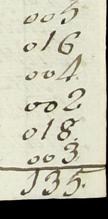 005
016
004
002
018
003
135